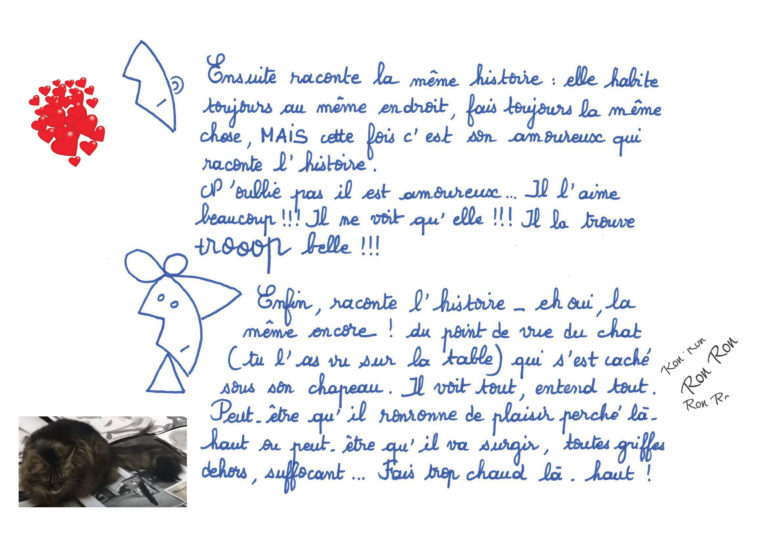 Ensuite raconte la même histoire : elle habite
toujours au même endroit, fais toujours la même
chose, MAIS cette fois c'est son amoureux qui
raconte l'histoire.
N'oublie pas il est amoureux... Il l'aime
beaucoup !!! Il ne voit qu'elle !!! Il la trouve
trooop belle !!!
Enfin, raconte l'histoire _ eh oui, la
même encore ! du point de vue du chat
(tu l'as vu sur la table) qui s'est caché
sous son chapeau. Il voit tout, entend tout.
Peut-être qu'il ronronne de plaisir perché là-
haut ou peut-être qu'il va surgir, toutes griffes
dehors, suffocant... Fais trop chaud là-haut !
Ron-Ron
Ron Ron
Ron R